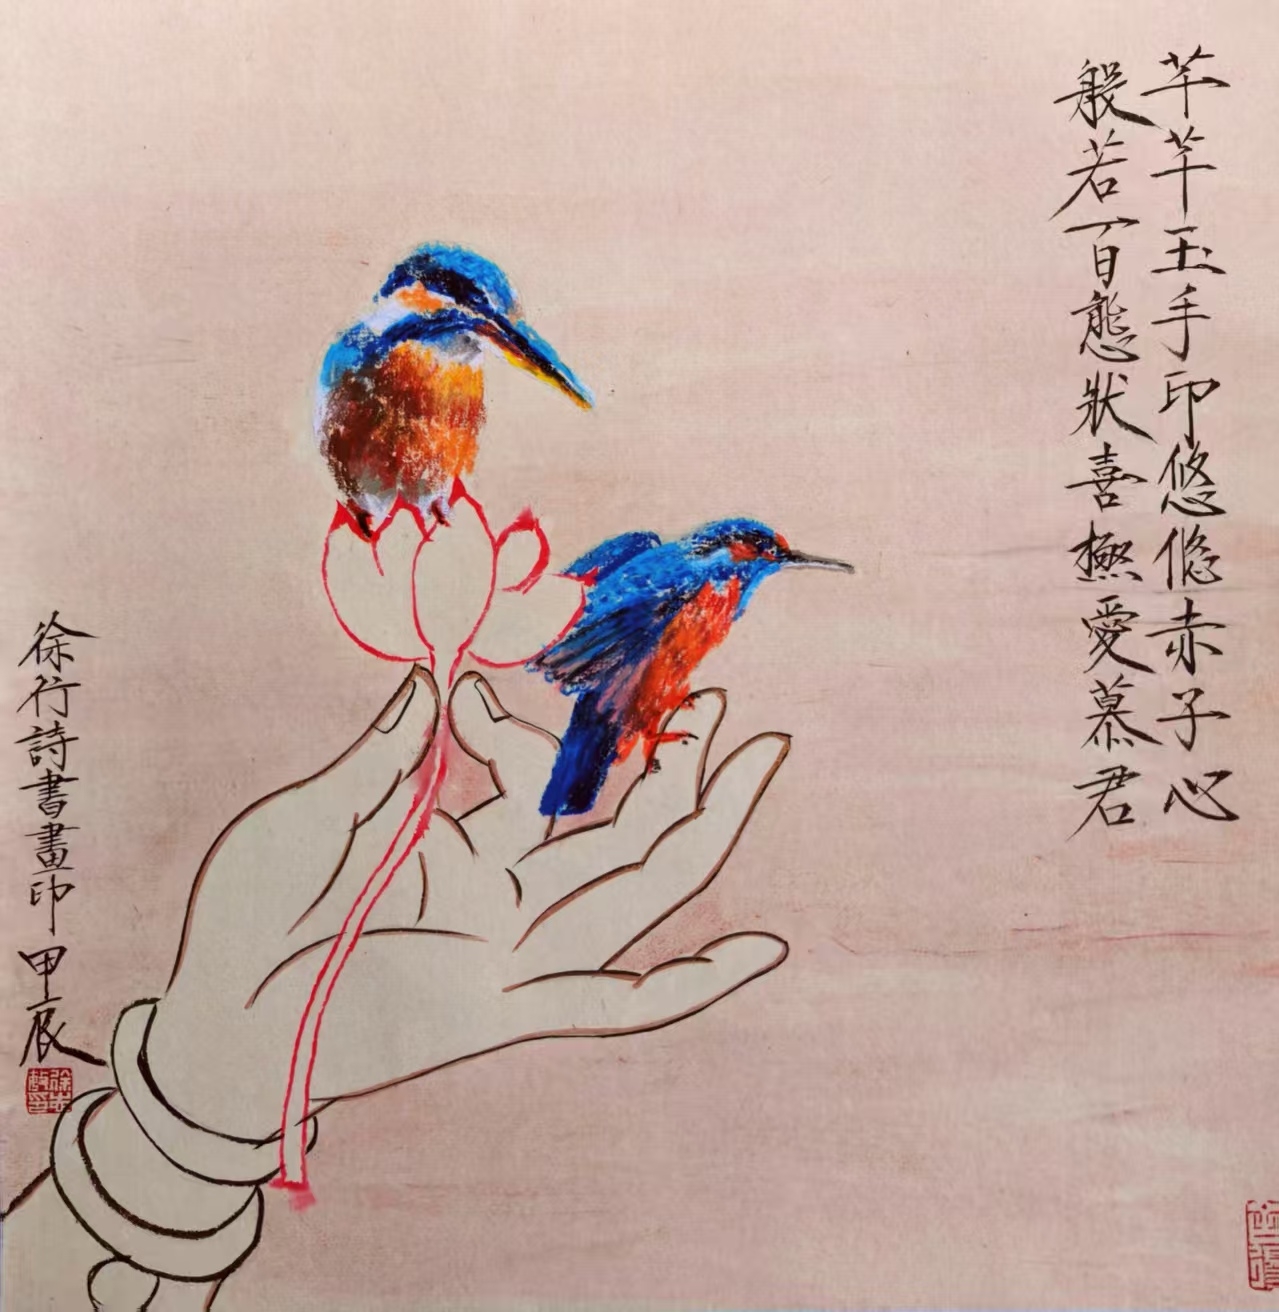 芊芊玉手印悠悠赤子心
般若百態狀喜極愛慕君
徐行詩書畫印
甲辰